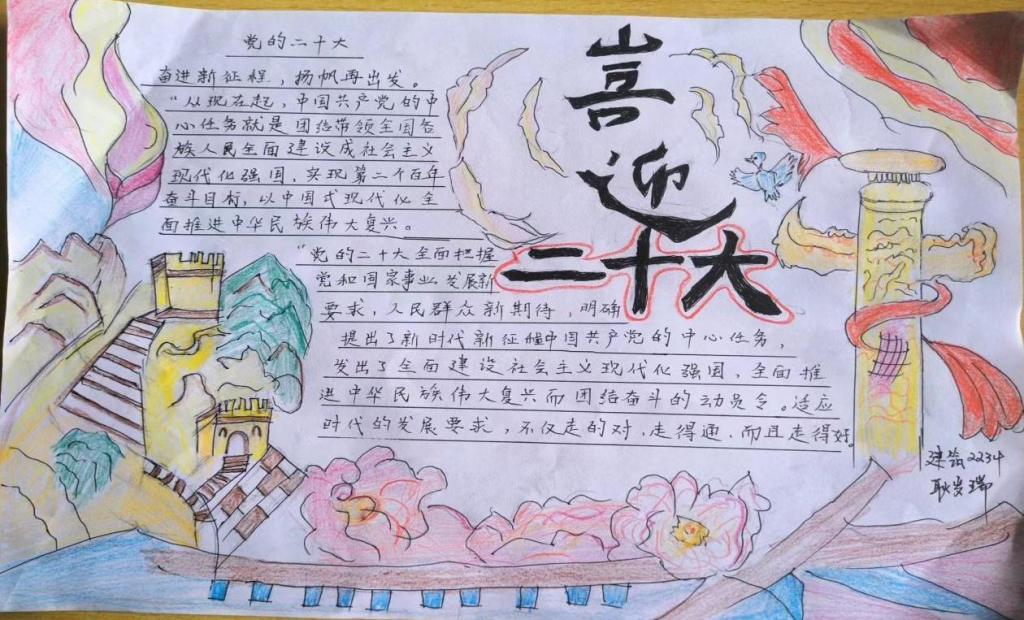 党的二十大
奋进新征程，扬帆再出发。
“从现在起，中国共产党的中
心任务就是团结带领全国各
族人民全面建设成社会主义
现代化强国，实现第二个百年
奋斗目标，以中国式现代化全
面推进中华民族伟大复兴。
“党的二十大全面把握
党和国家事业发展新
要求，人民群众新期待，明确
提出了新时代新征程中国共产党的中心任务，
发出了全面建设社会主义现代化强国、全面推
进中华民族伟大复兴而团结奋斗的动员令。适应
时代的发展要求，不仅走的对、走得通，而且走得好。
喜
迎
二十大
建筑2234